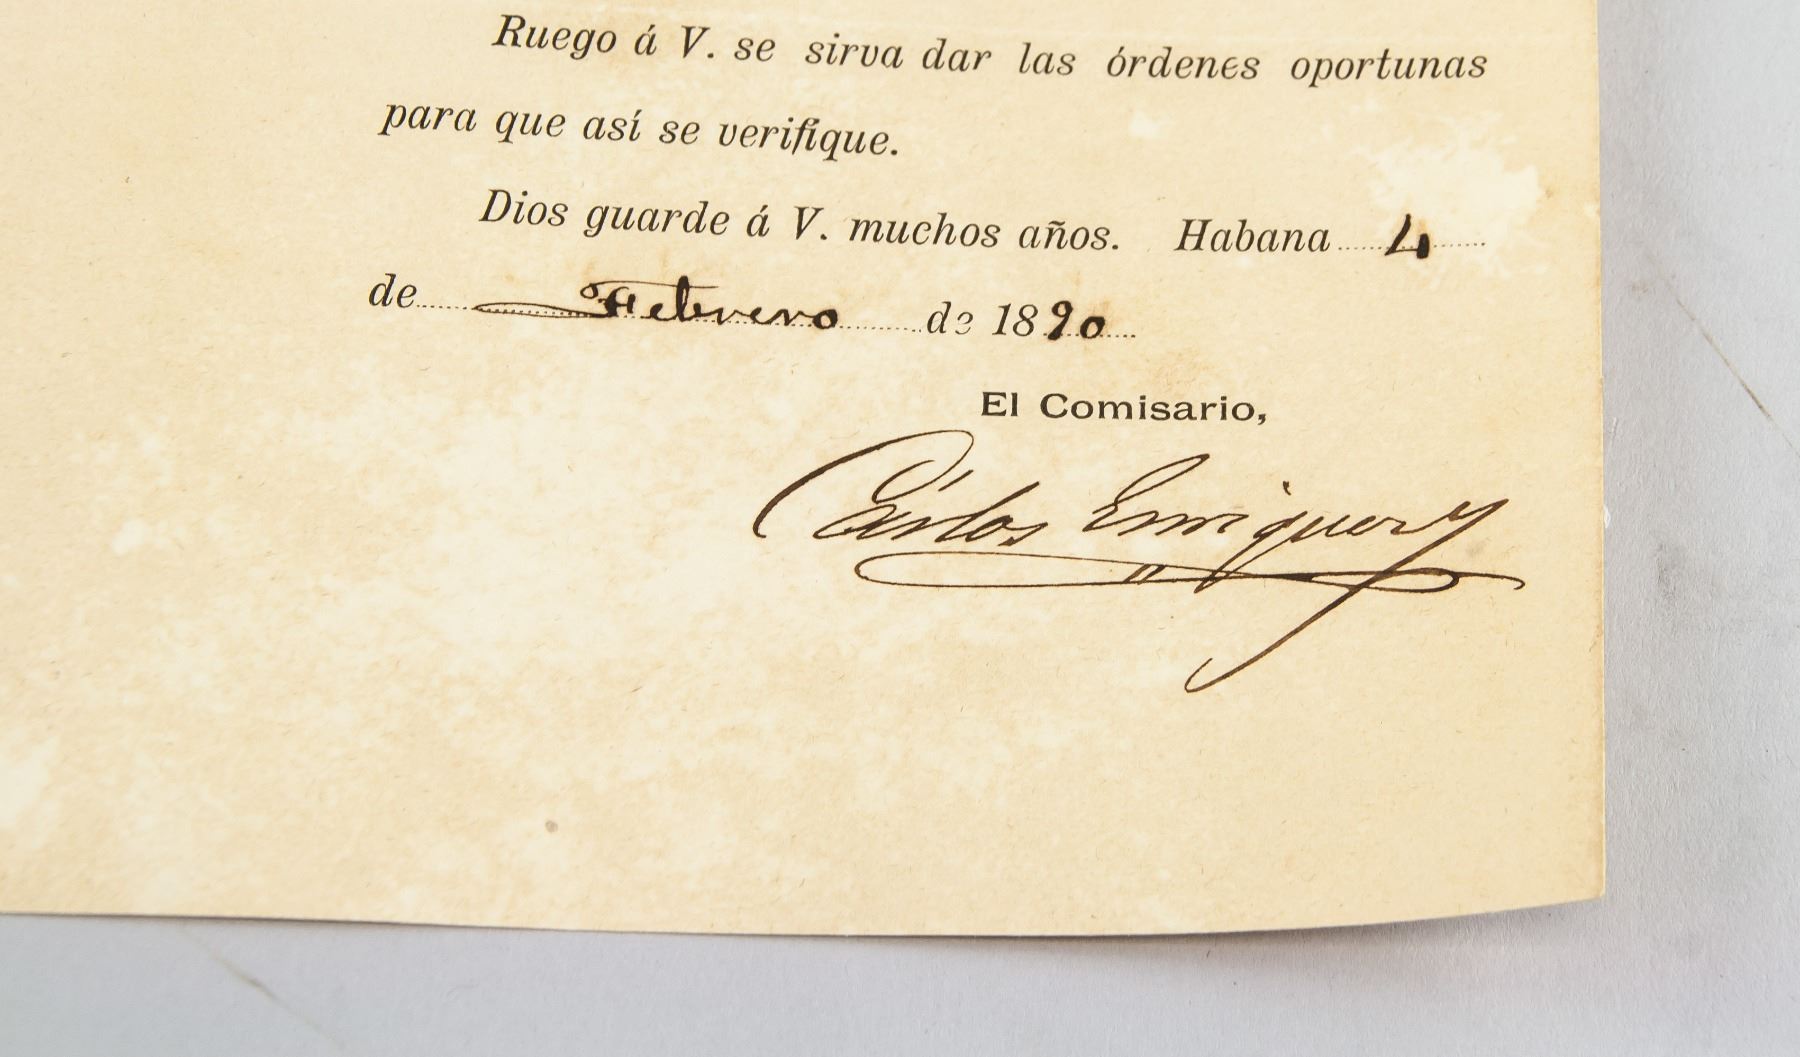 Ruego á V. se sirva dar las órdenes oportunas
para que así se verifique.
Dios guarde á V. muchos años. Habana 4
de Febrero de 1890
El Comisario,
Cárlos Enriquez